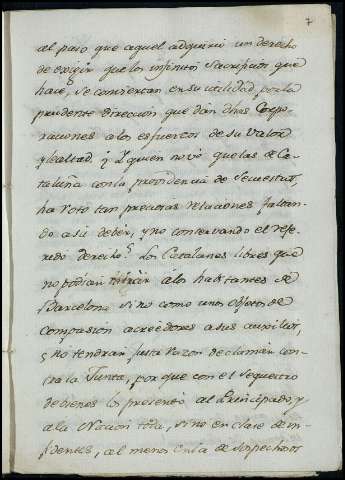 7
al paso que aquel adquirió un derecho
de exigir que los infinitos sacrificios que
hace, se conviertan en su utilidad, por la
prudente direccion que dán dhas Corpo-
raciones a los esfuerzos de su valor
y lealtad. ¿Y quien no vé que la de Ca-
taluña con la providencia de Secuestros,
ha roto tan preciosas relaciones faltan-
do a su deber, y no conservando el refe-
rido derecho? Los Catalanes libres que
no podian mirár á los habitantes de
Barcelona sino como unos objetos de
compasion acreedores a sus auxilios,
¿no tendrán justa razon de clamár con-
tra la Junta, por que con el sequestro
de bienes los presentó al Principado, y
a la Nacion toda, sino en clase de in-
fidentes, al menos en la de sospechosos